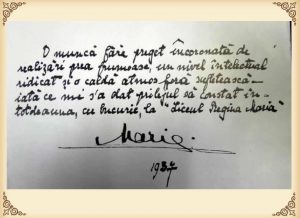 O muncă fără preget încoronată de
realizări prea frumoase, un nivel intelectual
ridicat și o caldă atmosferă sufletească –
iată ce mi s'a dat prilejul să constat în-
totdeauna, cu bucurie, la "Liceul Regina Maria"
Maria.
1937